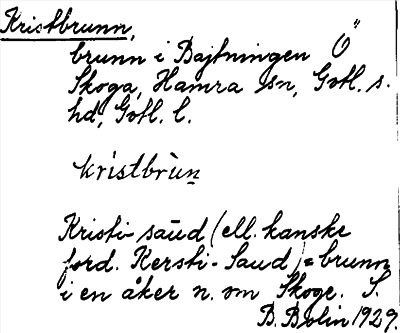 Kristbrunn,
brunn i Bajtningen Ö"
Skoga, Hamra sn, Gotl. s.
hd, Gotl. l.
kristbrùn
Kristi-saud (ell. kanske
ford. Kersti-Saud) = brunn
i en åker n. om Skoge. S.
B. Bolin 1929.